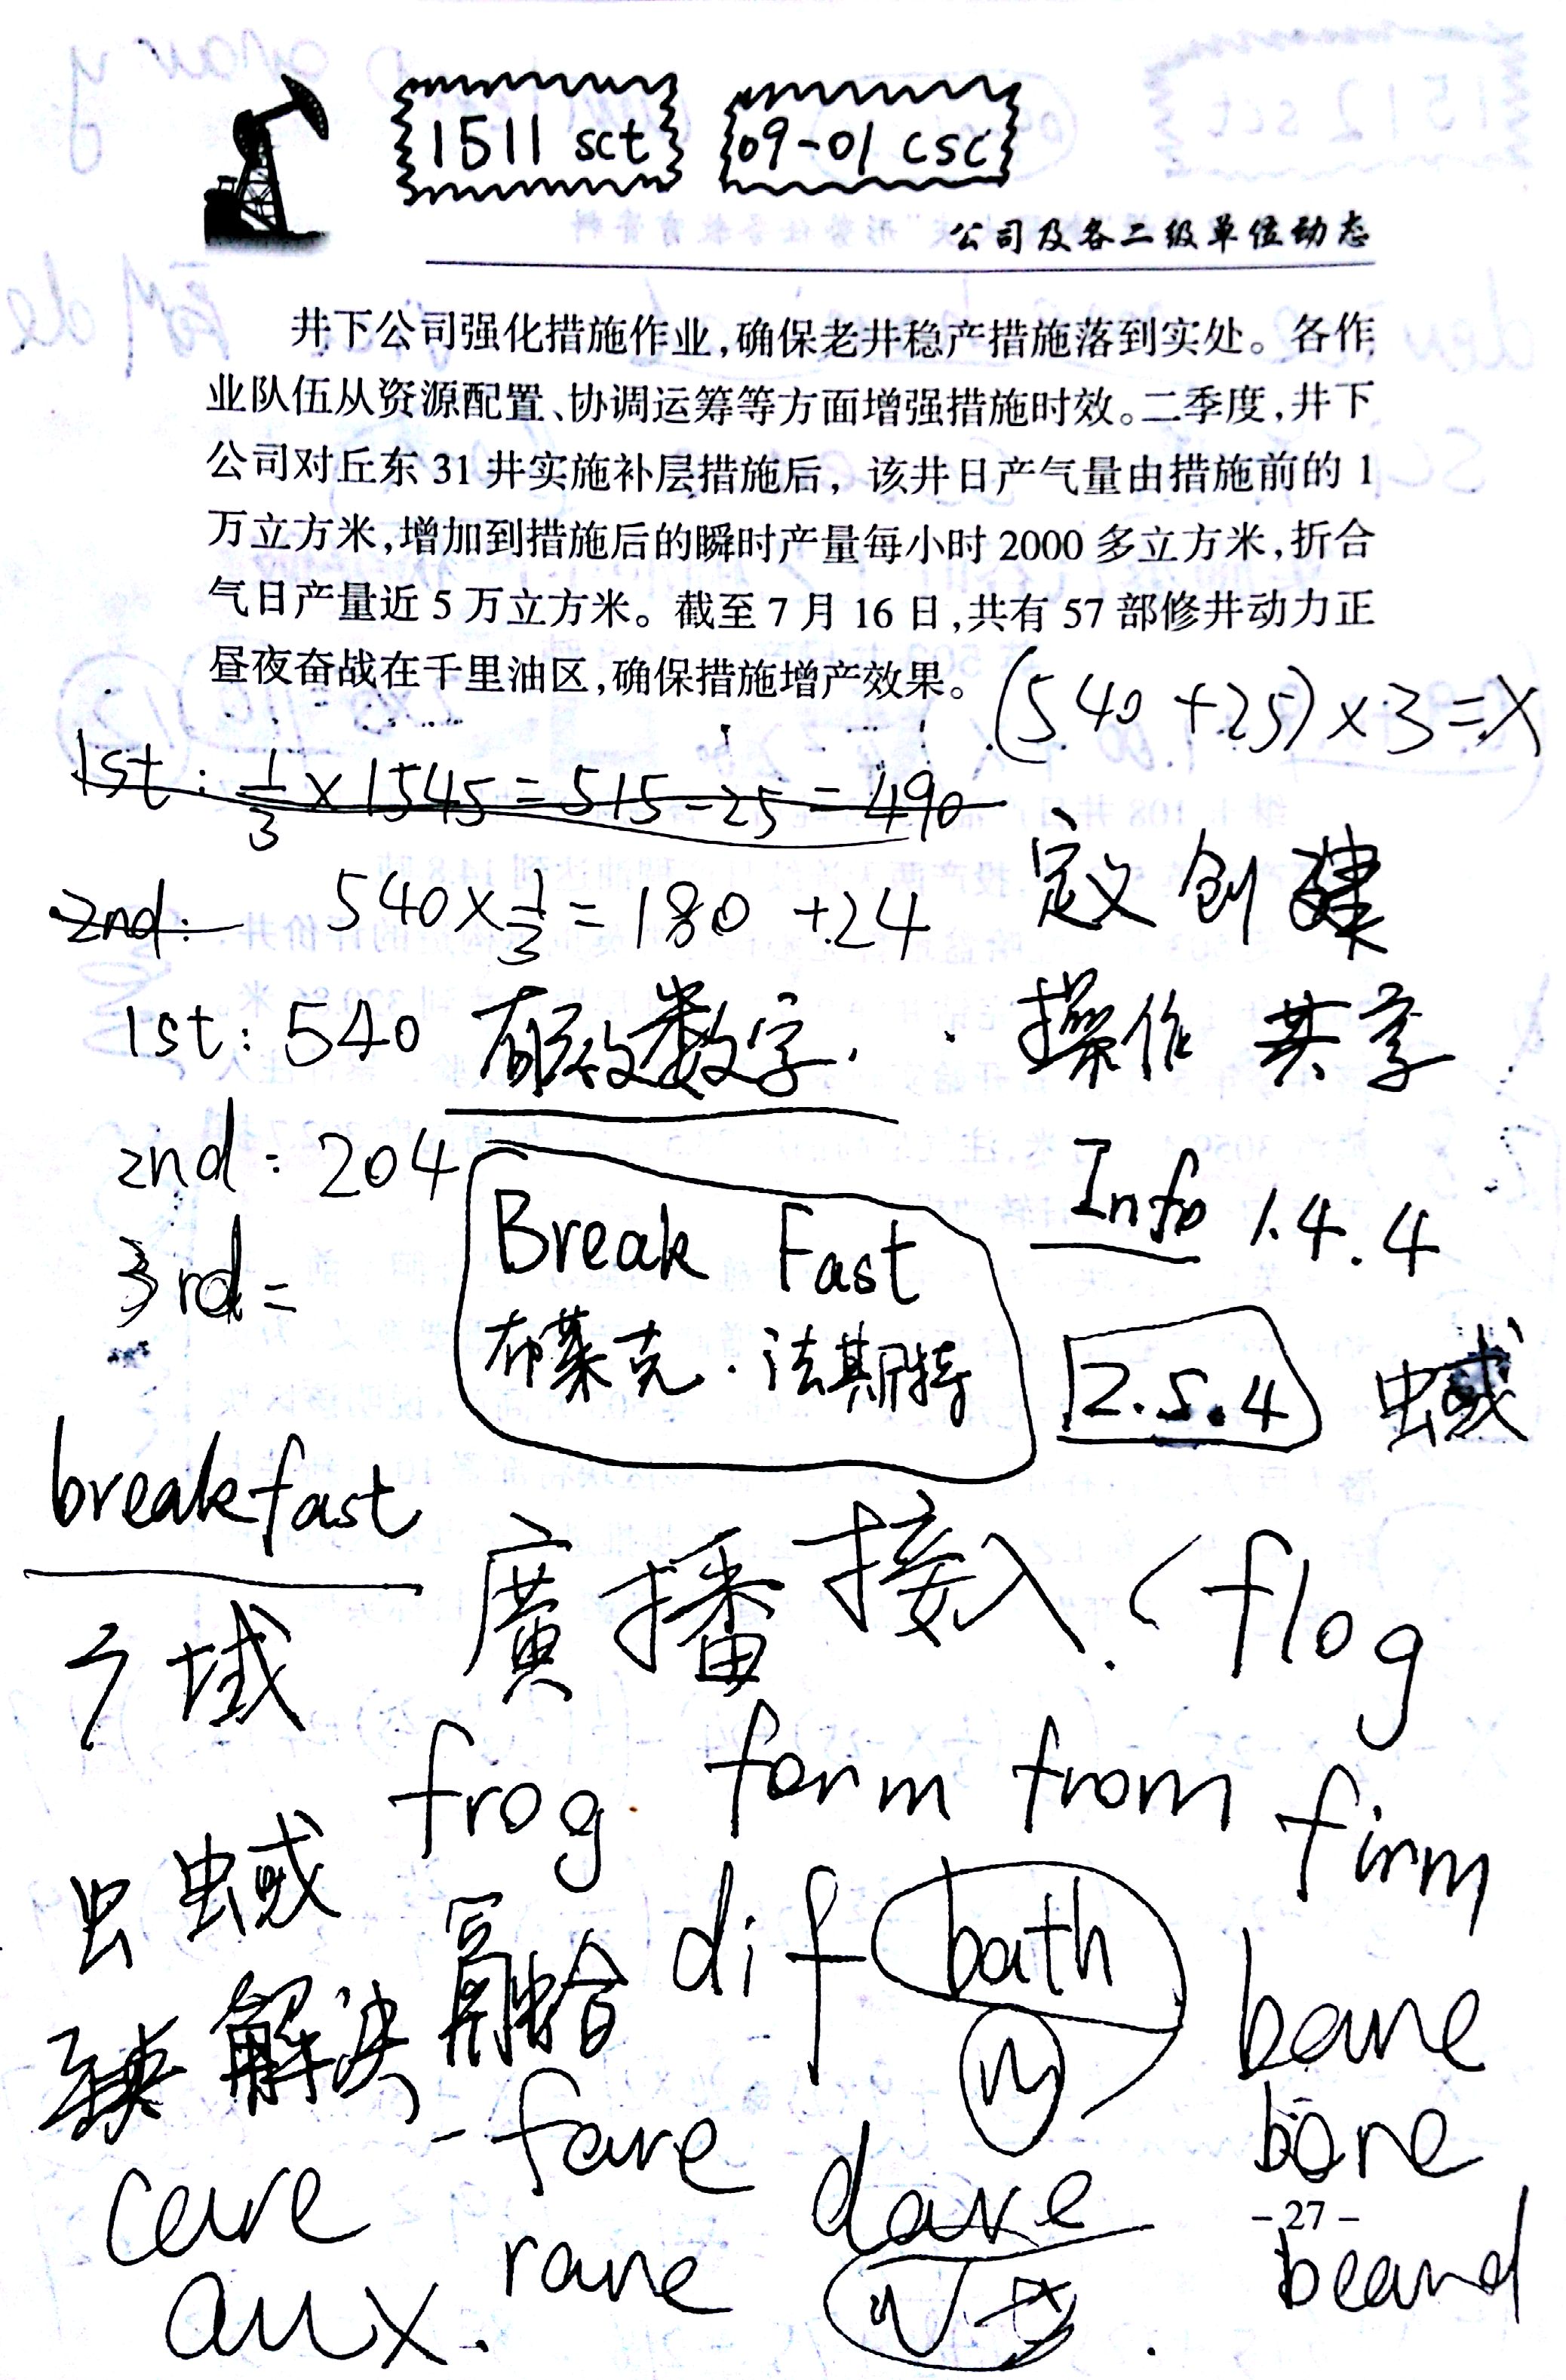 1511 sct 09-01 csc
公司及各二级单位动态
井下公司强化措施作业,确保老井稳产措施落到实处。各作
业队伍从资源配置、协调运筹等方面增强措施时效。二季度,井下
公司对丘东 31 井实施补层措施后，该井日产气量由措施前的 1
万立方米,增加到措施后的瞬时产量每小时 2000 多立方米,折合
气日产量近 5 万立方米。截至 7 月 16 日,共有 57 部修井动力正
昼夜奋战在千里油区,确保措施增产效果。
(540+25)×3=X
1st: 1/3 × 1545 = 515 - 25 = 490
2nd: 540 × 1/3 = 180 + 24
定义 创建
1st: 540 有效数字.
操作 共享
2nd: 204
Info 1.4.4
3rd=
Break Fast
布莱克·法斯特
2.5.4
breakfast
廣播接入
flog
域
frog. form from
firm
dif bath
m
解决
bare
care
fare
dare
bore
- 27 -
aux.
rare
beard